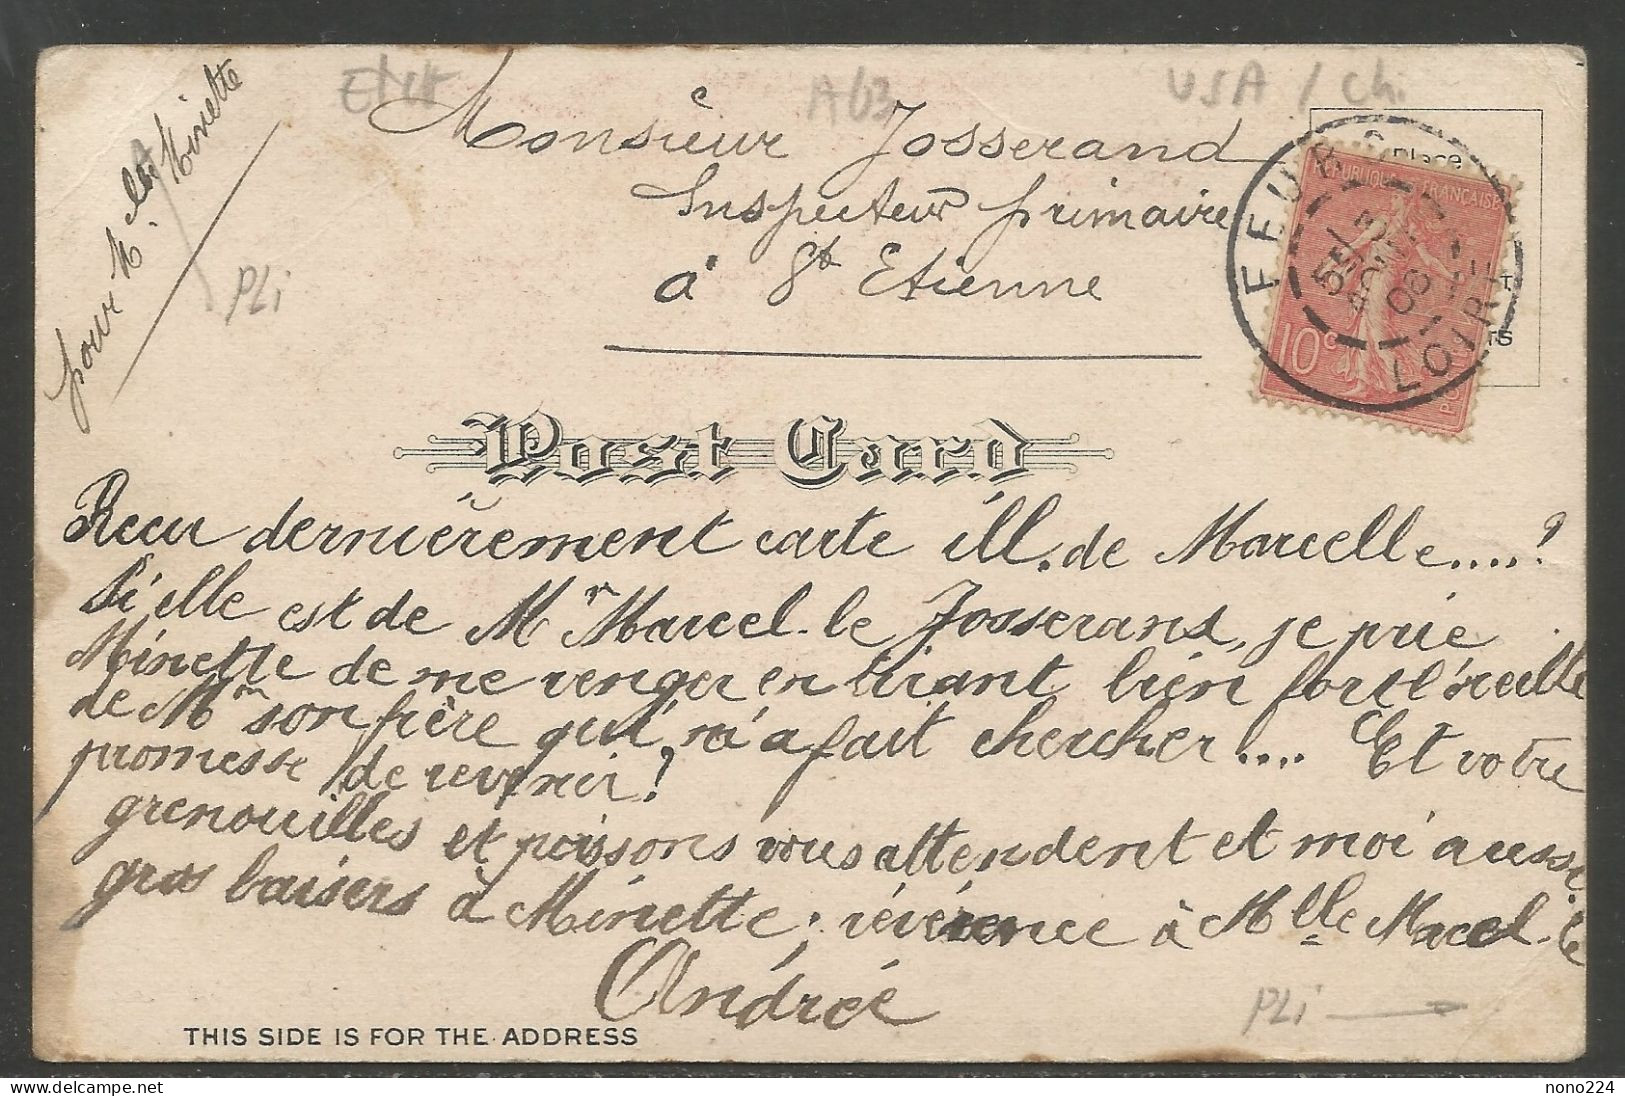 pour Mlle Minette
Etat
A63
USA / Ch.
Monsieur Josserand
Inspecteur primaire
à St Etienne
PLi
Place
REPUBLIQUE FRANÇAISE
10c
FEURS
LOIRE
Post Card
Recu dernièrement carte ill. de Marcelle....?
Si elle est de Mr Marcel-le Josserand, je prie
Minette de me venger en tirant bien fort l'oreille
de Mr son frère qui m'a fait chercher.... Et votre
promesse de revenir!
grenouilles et poissons vous attendent et moi aussi.
gros baisers à Minette; révérence à Mlle Marcel-le
Andrée
PLi
THIS SIDE IS FOR THE ADDRESS
nono224